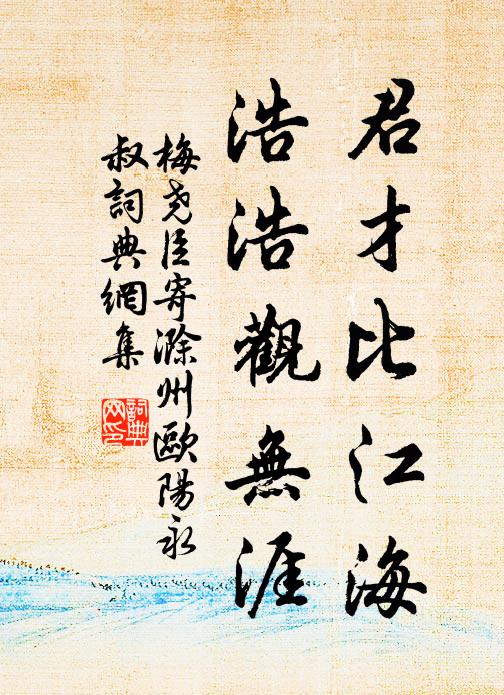 君才比江海
浩浩觀無涯
梅堯臣寄滁州歐陽永
叔詞典網集
詞典
网印